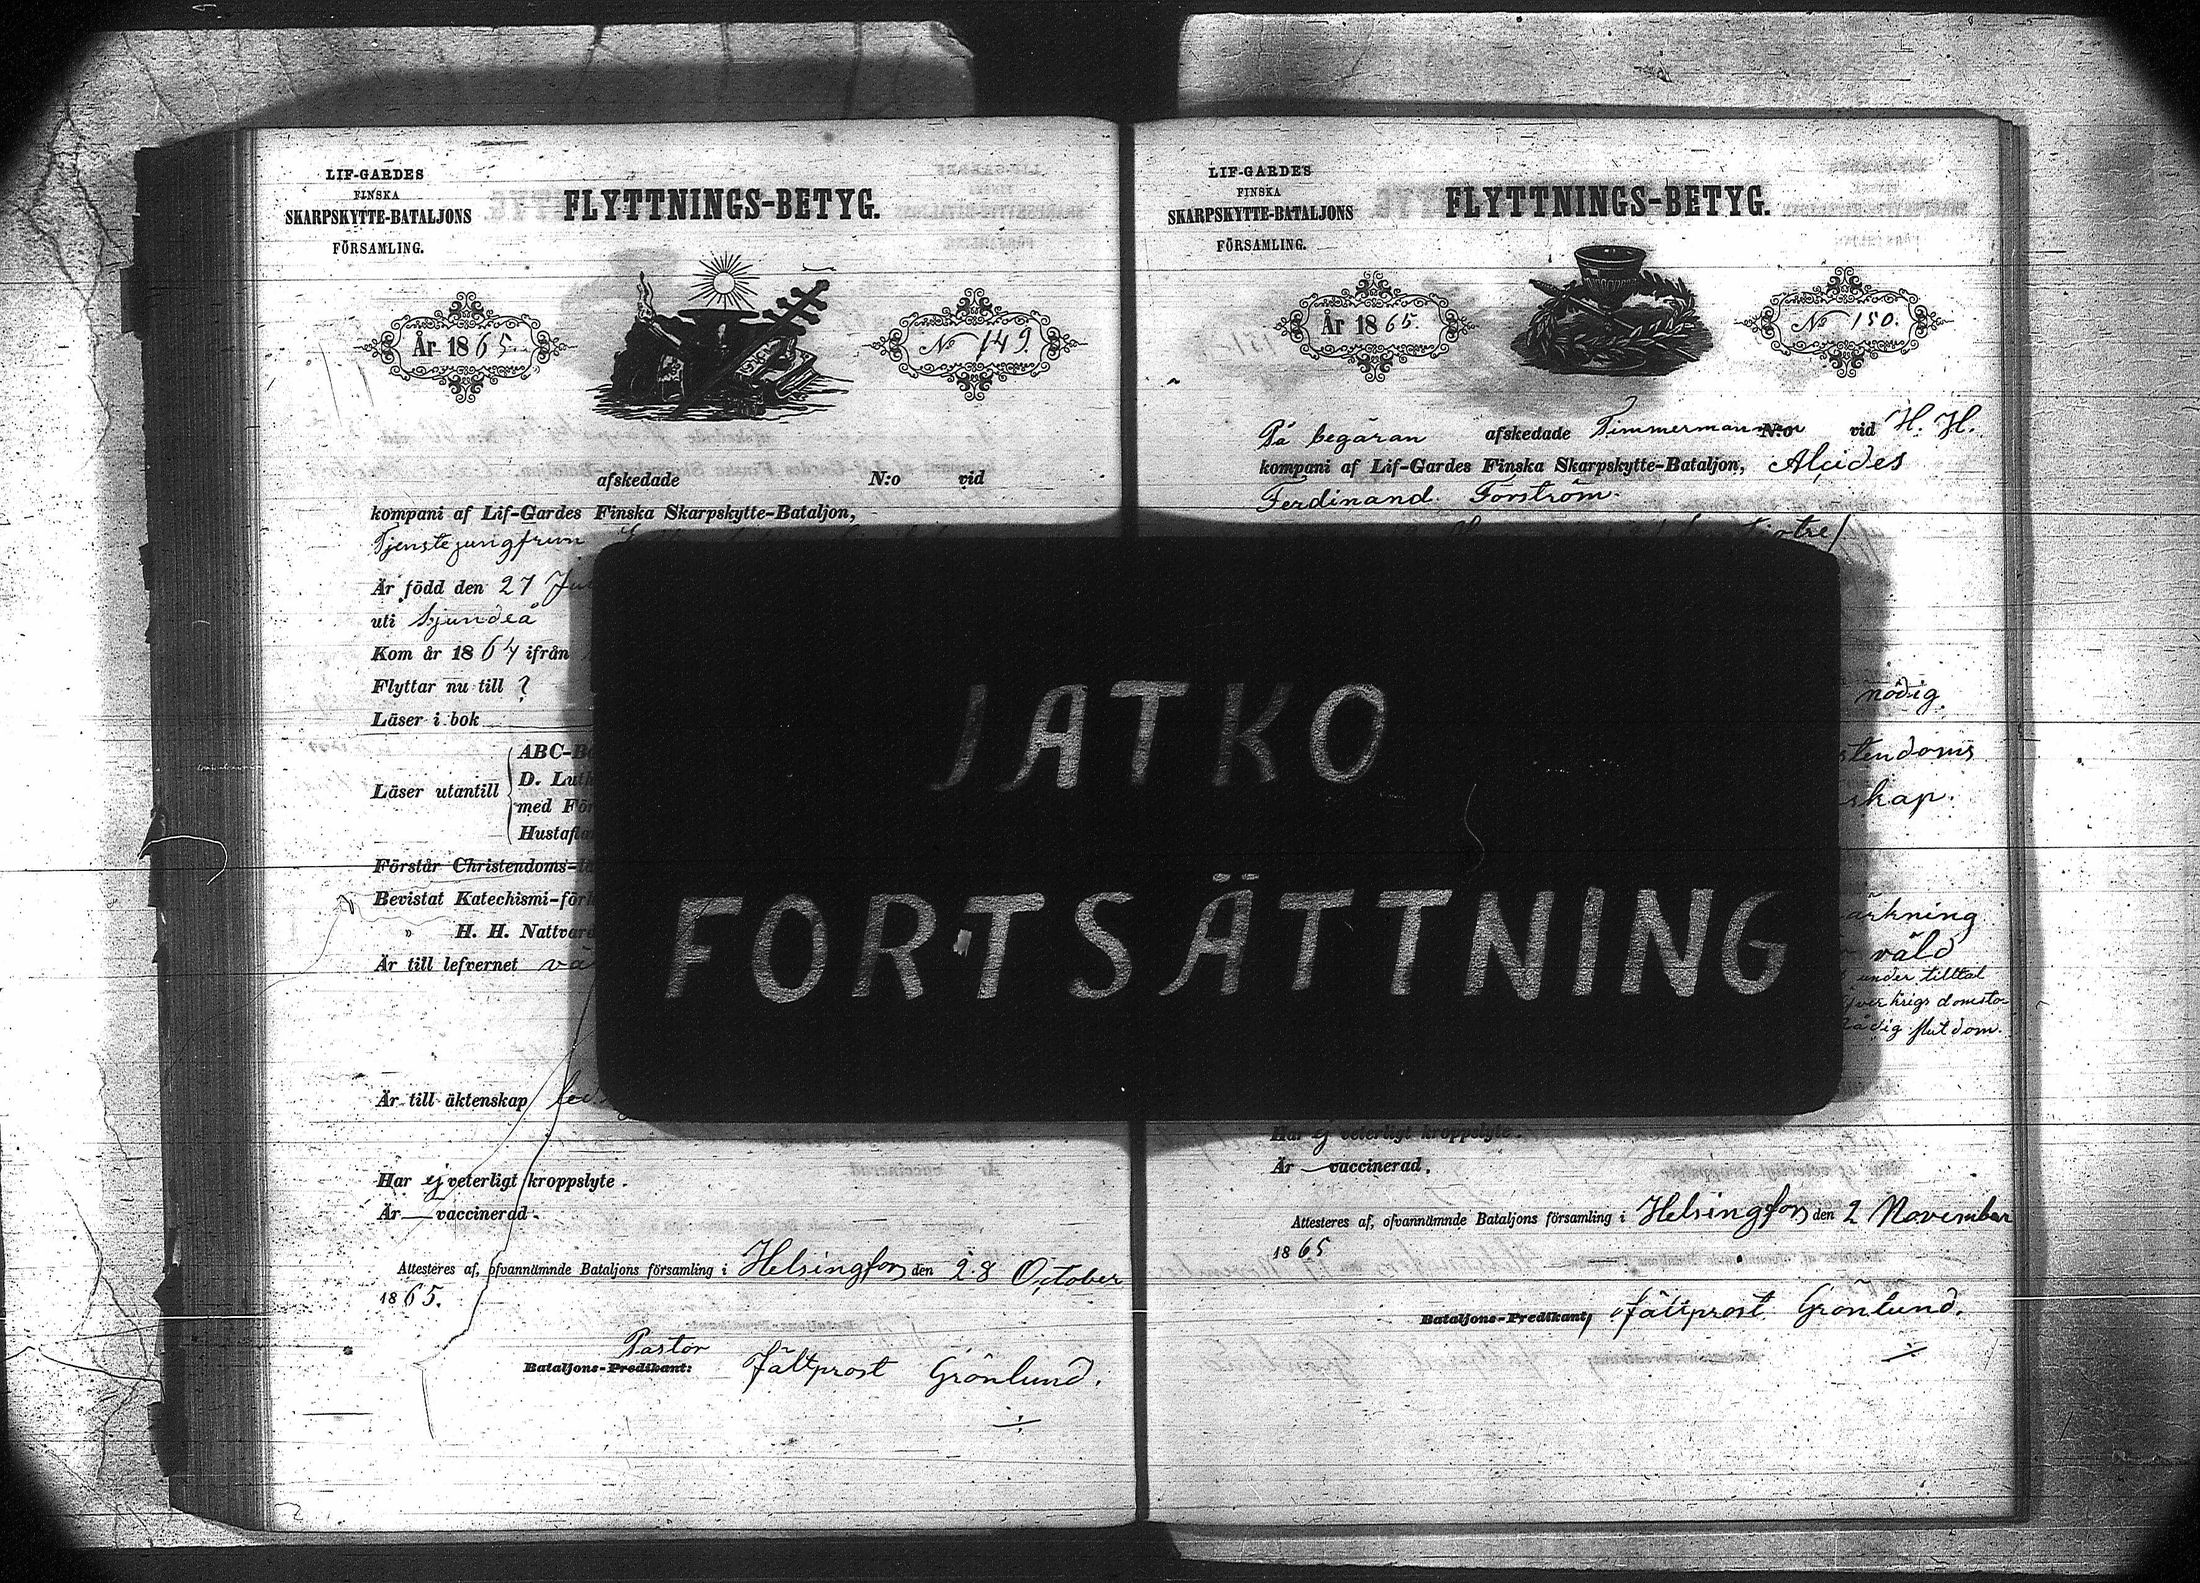 LIF-GARDES
FINSKA
SKARPSKYTTE-BATALJONS
FÖRSAMLING.
FLYTTNINGS-BETYG.
År 1865.
No 149.
afskedade N:o vid
kompani af Lif-Gardes Finska Skarpskytte-Bataljon,
Tjenstejungfrun
Är född den 27
uti Sjundeå
Kom år 1864 ifrån
Flyttar nu till ?
Läser i bok
Läser utantill
ABC-B
D. Luth
med För
Hustafla
Förstår Christendoms-
Bevistat Katechismi-för
" H. H. Nattvard
Är till lefvernet
Är till äktenskap
Har ej veterligt kroppslyte.
Är — vaccinerad.
Attesteres af, ofvannämnde Bataljons församling i Helsingfors den 28 October
1865.
Pastor
Bataljons-Predikant: Fältprost Grönlund.
LIF-GARDES
FINSKA
SKARPSKYTTE-BATALJONS
FÖRSAMLING.
FLYTTNINGS-BETYG.
År 1865.
No 150.
På begäran afskedade Timmermannen N:o vid H. H.
kompani af Lif-Gardes Finska Skarpskytte-Bataljon, Alcides
Ferdinand Forström.
nödig
stendoms
skap.
ärkning
våld
under tilltal
domsto-
slutdom.
Har ej veterligt kroppslyte.
Är — vaccinerad.
Attesteres af, ofvannämnde Bataljons församling i Helsingfors den 2 November
1865
Bataljons-Predikant, Fältprost Grönlund.
JATKO
FORTSÄTTNING